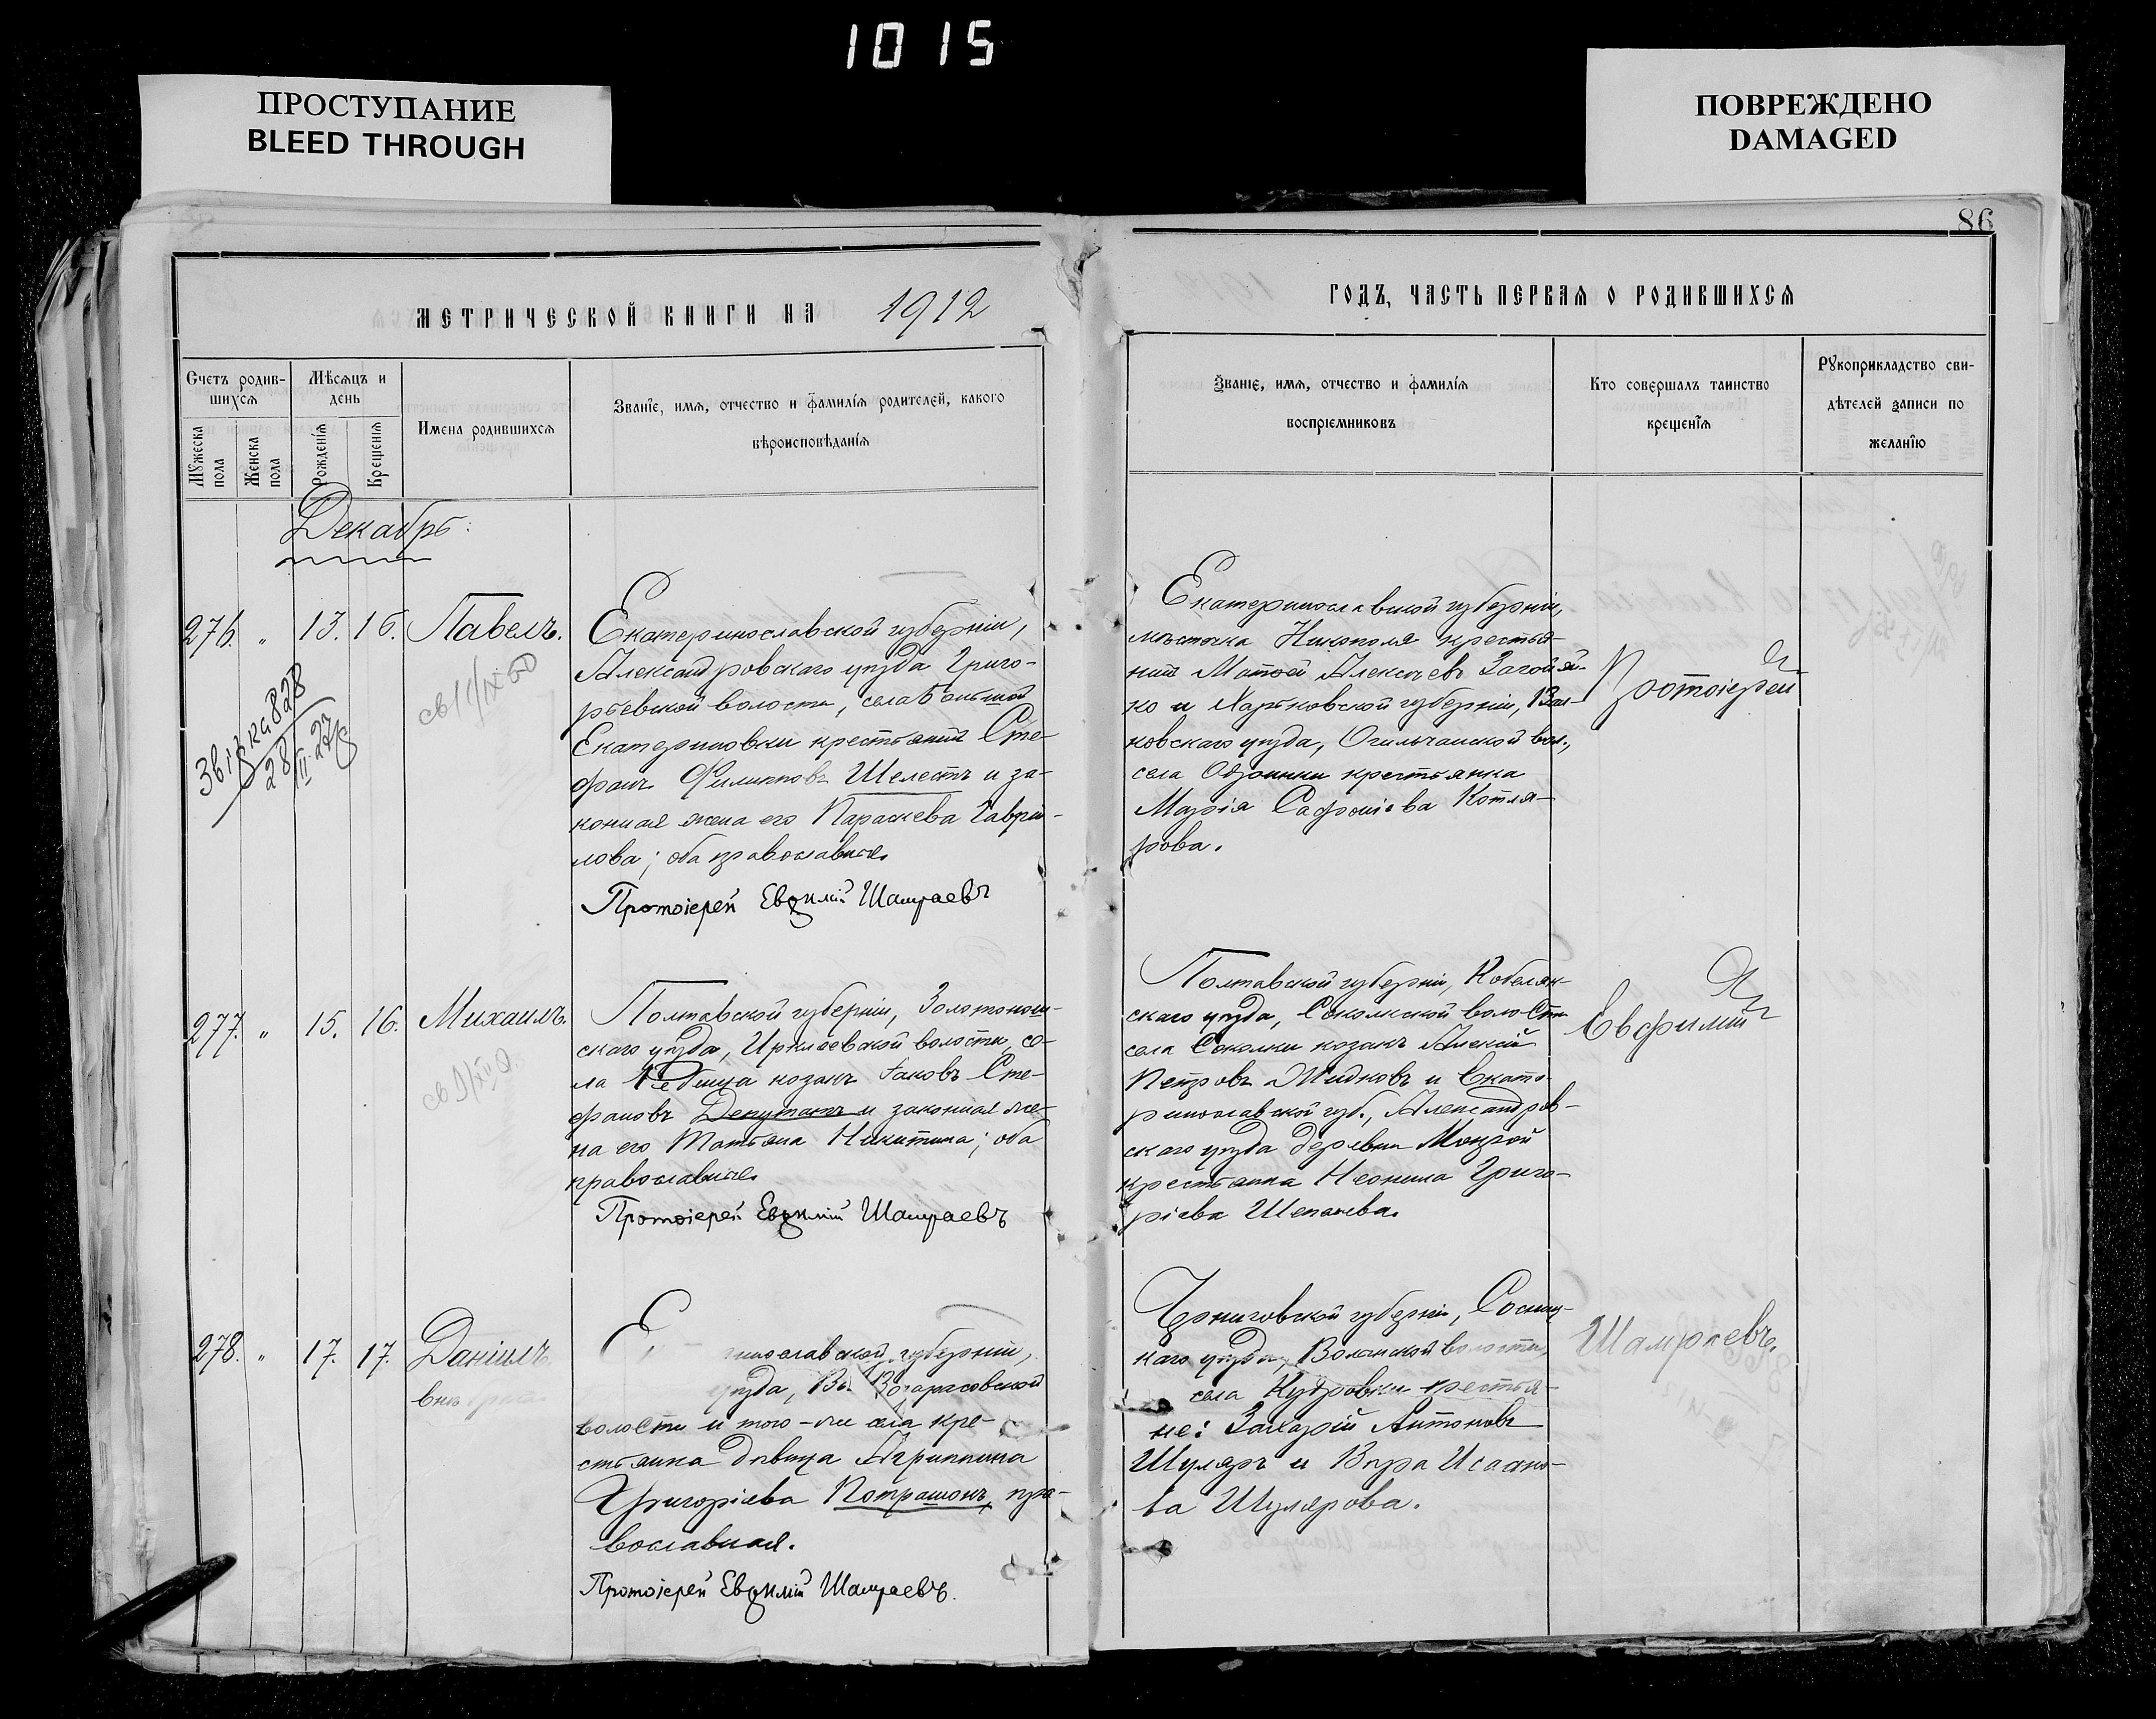 1015
ПРОСТУПАНИЕ
BLEED THROUGH
ПОВРЕЖДЕНО
DAMAGED
86
МЕТРИЧЕСКОЙ КНИГИ НА 1912
ГОДЪ, ЧАСТЬ ПЕРВАЯ О РОДИВШИХСЯ
Счетъ родив-
шихся
Мужеска
пола
Женска
пола
Мѣсяцъ и
день
Рожденія
Крещенія
Имена родившихся
Званіе, имя, отчество и фамилія родителей, какого
вѣроисповѣданія
Званіе, имя, отчество и фамилія
воспріемниковъ
Кто совершалъ таинство
крещенія
Рукоприкладство сви-
дѣтелей записи по
желанію
Декабрь:
276. " 13. 16. Павелъ.
Екатеринославской губерніи,
Александровскаго уѣзда Григо-
рьевской волости, села Большой
Екатериновки крестьянинъ Сте-
фанъ Филиповъ Шелестъ и за-
конная жена его Параскева Гаври-
лова; оба православные.
Протоіерей Евѳимій Шамраевъ
Екатеринославской губерніи,
мѣстечка Никополя крестья-
нинъ Матѳей Алексѣевъ Загой-
ко и Харьковской губерніи, Вал-
ковскаго уѣзда, Огильчанской вол.,
села крестьянка
Марія Софоніева Котля-
рова.
Протоіерей
Звірка 828
28/III 27
277. " 15. 16. Михаилъ.
Полтавской губерніи, Золотонош-
скаго уѣзда, Ирклѣевской волости, се-
ла козакъ Іаковъ Сте-
фановъ Депутатъ и законная же-
на его Татьяна Никитина; оба
православные.
Протоіерей Евѳимій Шамраевъ
Полтавской губерніи, Кобеляк-
скаго уѣзда, Соколкской волости
села Соколки козакъ Алексій
Петровъ Жидковъ и Екате-
ринославской губ., Александров-
скаго уѣзда деревни Мокрой
крестьянка Неонила Григо-
ріева Шепелева.
Евфимій
278. " 17. 17. Даніилъ
внѣбрач
Е инославской губерніи,
уѣзда,
волости и того-же села кре-
стьянка дѣвица Агриппина
Григоріева Потрашонъ, пра-
вославная.
Протоіерей Евѳимій Шамраевъ.
Черниговской губерніи, Сосниц-
каго уѣзда, Волынской волости,
села Кудровки крестья-
не: Захарій Антоновъ
Шуляръ и Вѣра Исаако-
ва Шулярова.
Шамраевъ.